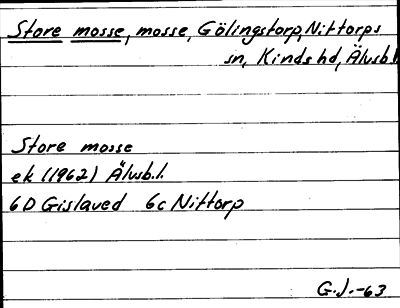 Store mosse, mosse, Gölingstorp, Nittorps
sn, Kinds hd, Älvsb l
Store mosse
ek (1962) Älvsb.l.
6D Gislaved 6c Nittorp
G.J.-63